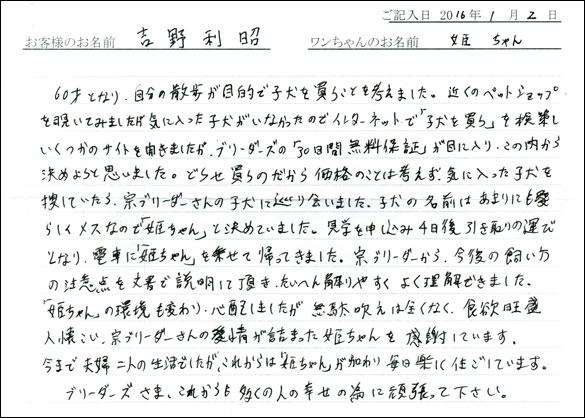 ご記入日 2016年 1月 2日
お客様のお名前 吉野利昭 ワンちゃんのお名前 姫ちゃん
60才となり、自分の散歩が目的で子犬を買うことを考えました。近くのペットショップ
を覗いてみましたが気に入った子犬がいなかったのでインターネットで「子犬を買う」を検索し
いくつかのサイトを開きましたが、ブリーダーズの「30日間無料保証」が目に入り、この内から
決めようと思いました。どうせ買うのだから価格のことは考えず気に入った子犬を
捜していたら、宗ブリーダーさんの子犬に巡り会いました。子犬の名前はあまりにも愛
らしくメスなので「姫ちゃん」と決めていました。見学を申し込み4日後引き取りの運び
となり、電車に「姫ちゃん」を乗せて帰ってきました。宗ブリーダーから、今後の飼い方
の注意点を文書で説明して頂き、たいへん解りやすくよく理解できました。
「姫ちゃん」の環境も変わり、心配しましたが無駄吠えは全くなく、食欲旺盛
人懐こい、宗ブリーダーさんの愛情が詰まった姫ちゃんを感謝しています。
今まで夫婦二人の生活でしたが、これからは「姫ちゃん」が加わり毎日楽しく過ごしています。
ブリーダーズさま、これからも多くの人の幸せの為に頑張って下さい。